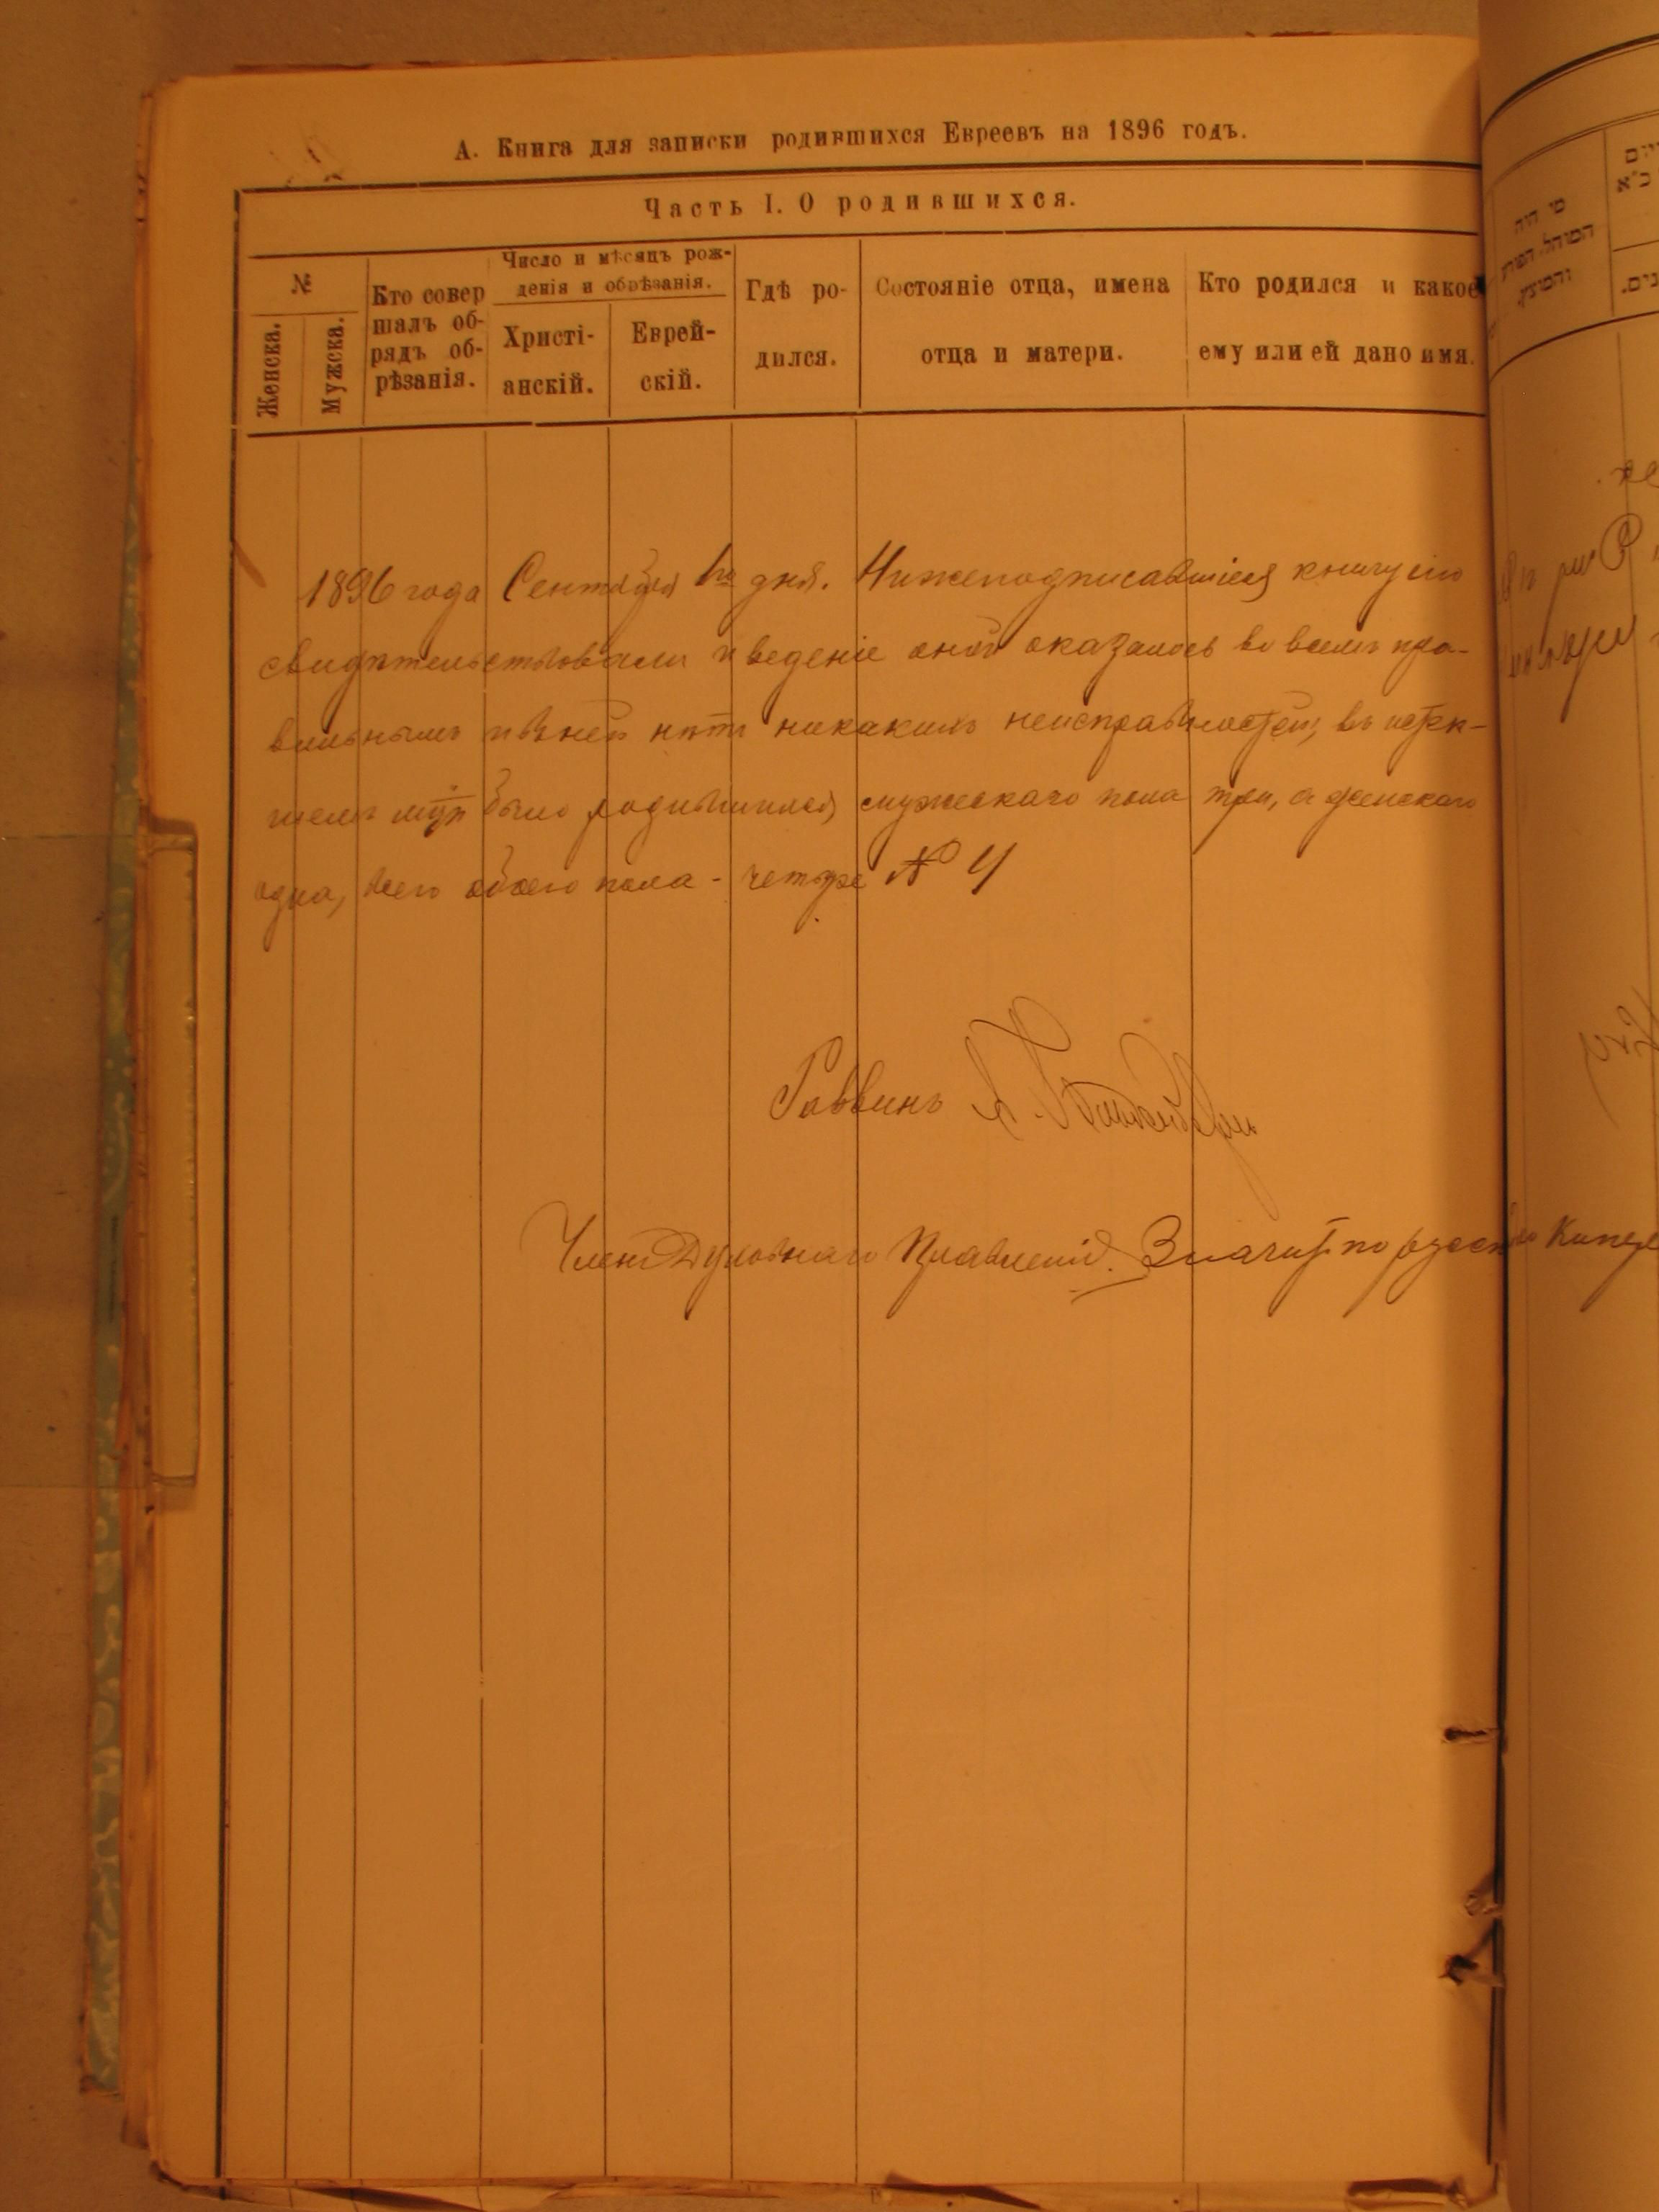 А. Книга для записки родившихся Евреевъ на 1896 годъ.
Часть I. О родившихся.
№
Женска.
Мужска.
Кто совер
шалъ об-
рядъ об-
рѣзанія.
Число и мѣсяцъ рож-
денія и обрѣзанія.
Христі-
анскій.
Еврей-
скій.
Гдѣ ро-
дился.
Состояніе отца, имена
отца и матери.
Кто родился и какое
ему или ей дано имя.
1896 года Сентября 1го дня. Нижеподписавшіеся книгу сію
свидѣтельствовали и веденіе оной оказалось во всемъ пра-
вильнымъ и въ ней нѣтъ никакихъ неисправностей, въ истек-
шемъ было родившихся мужескаго пола три, а женскаго
одна, всего обоего пола - четыре № 4
Раввинъ
Членъ Духовнаго Правленія. Значитъ по русски
מי היה
המוהל הפורע
והמוצץ.